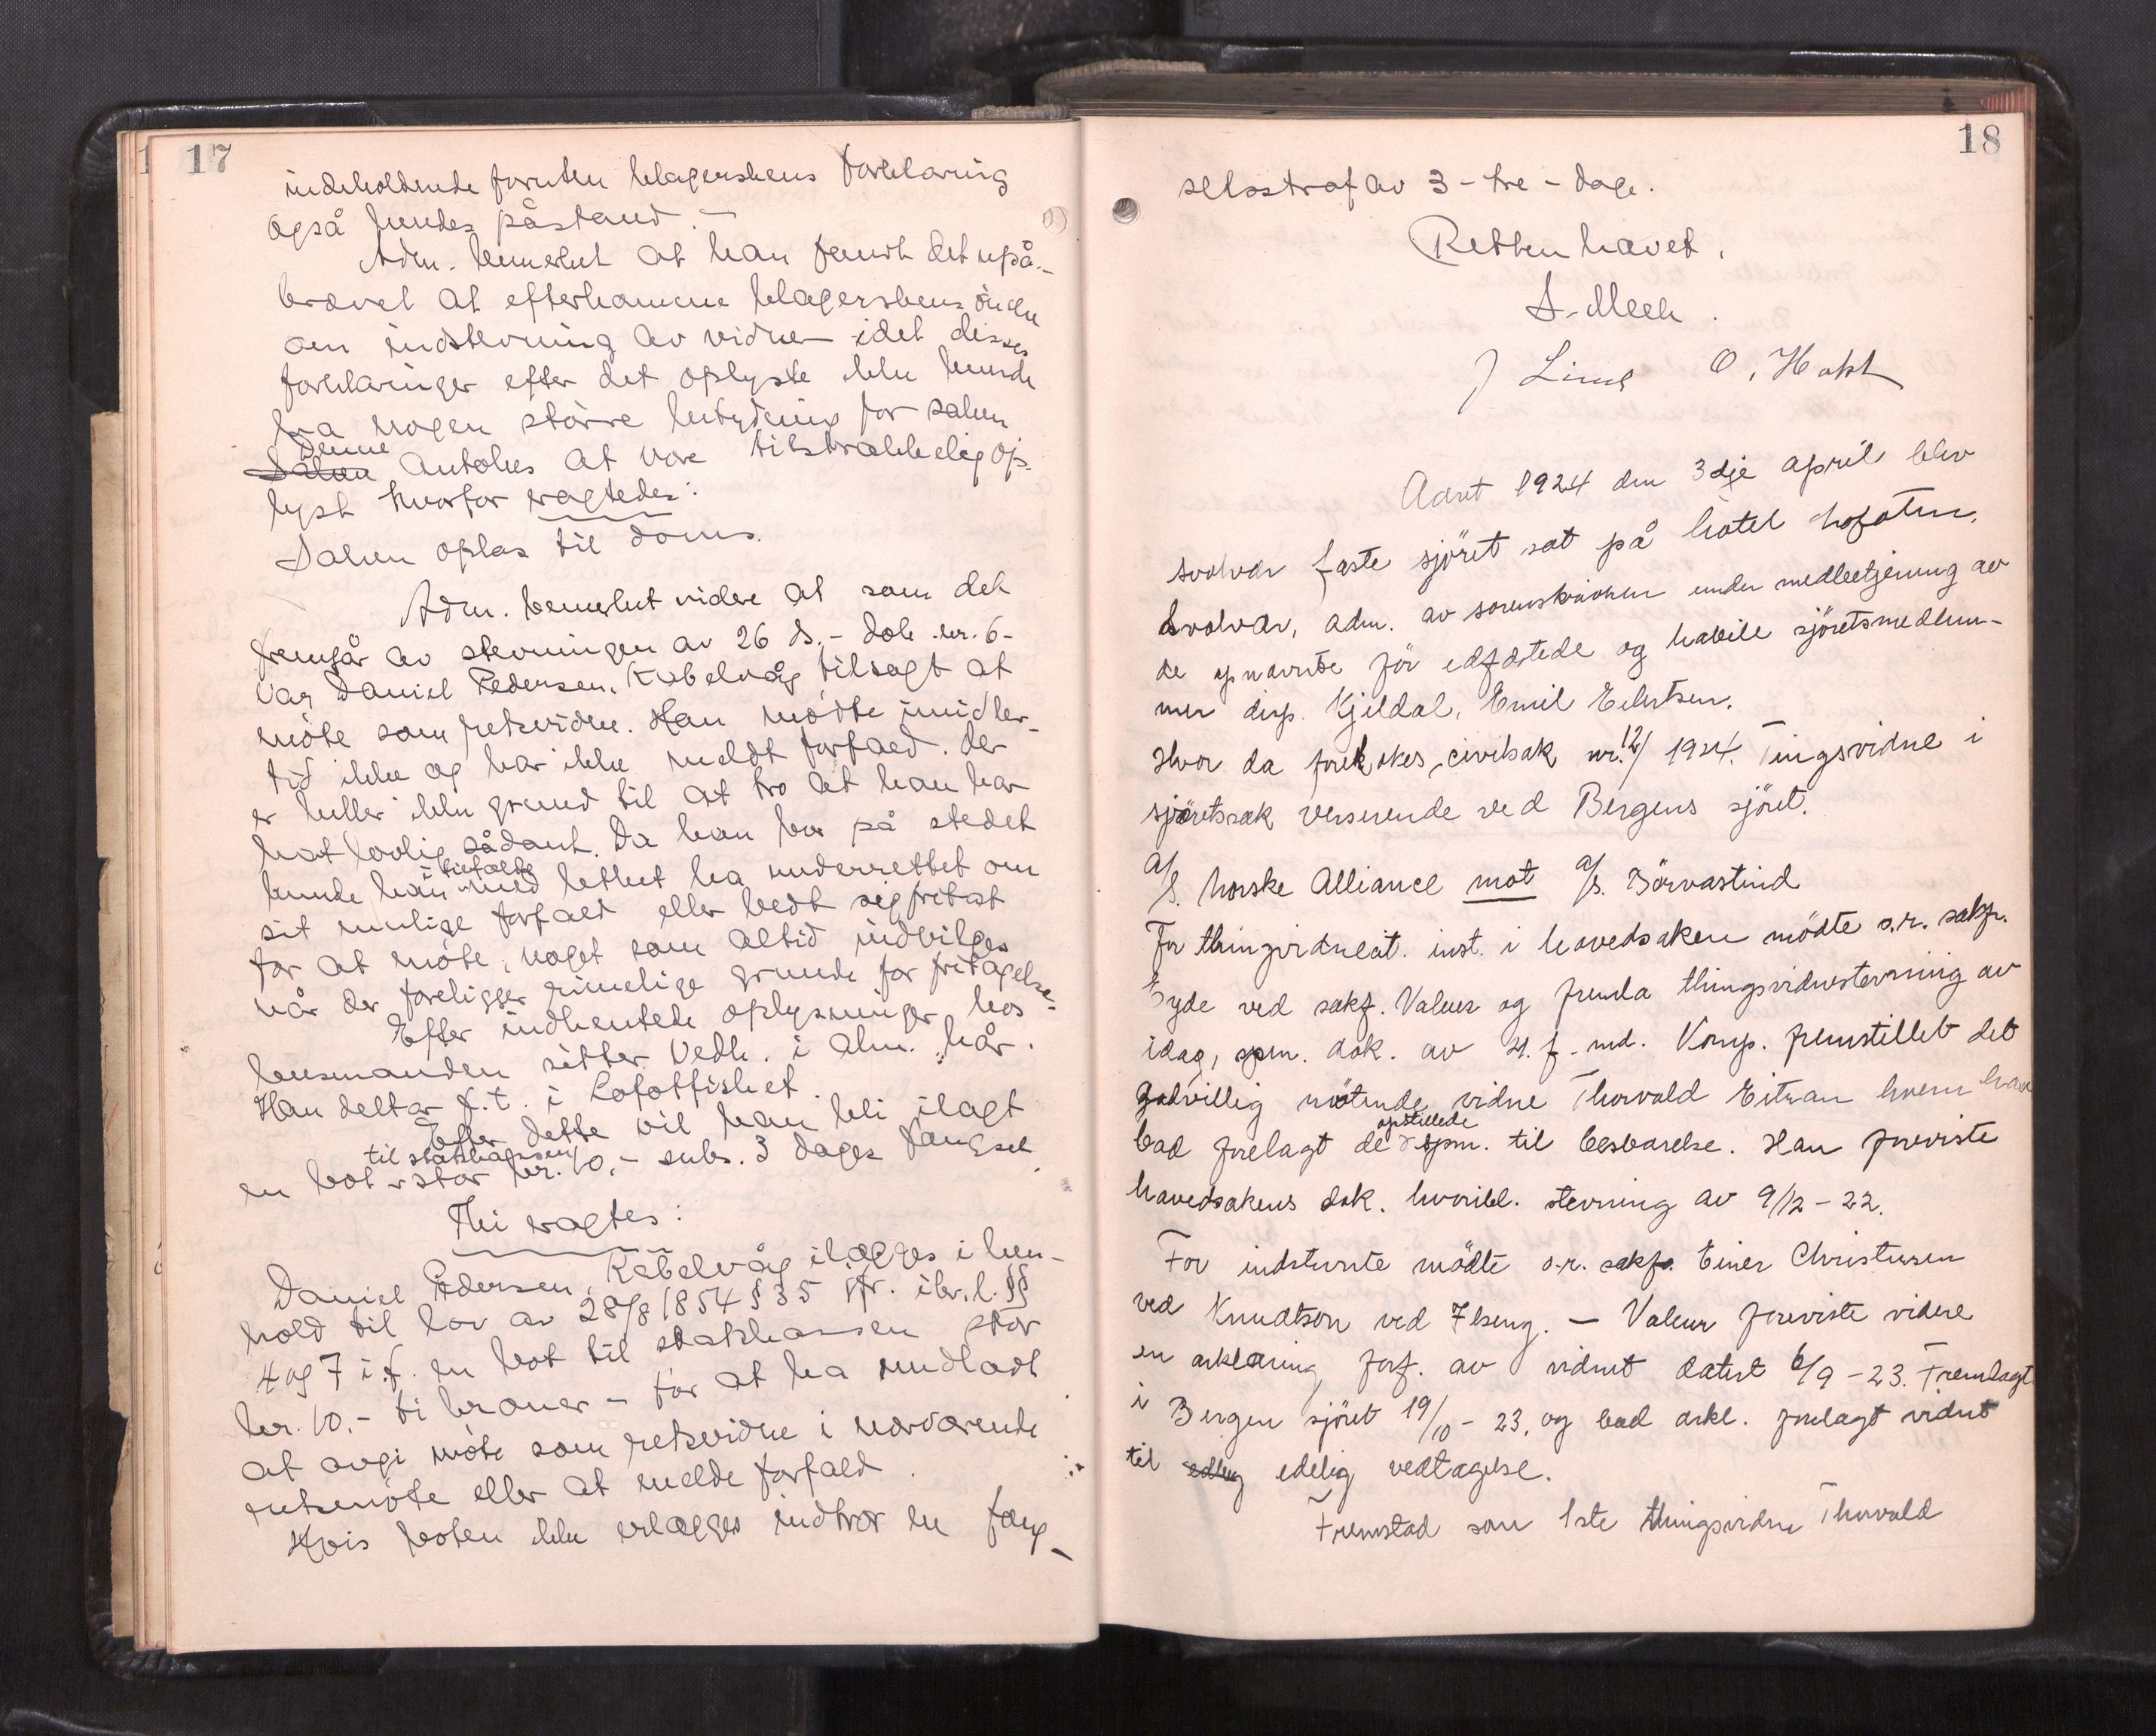 17
indeholdende foruten klagerskens forklaring
også hendes påstand. –
Adm. bemerket at han fandt det upå-
krævet at efterkomme klagerskens önske
om indstevning av vidner idet disses
forklaringer efter det oplyste ikke kunde
ha nogen större betydning for saken
Denne
Saken antokes at være tilstrækkelig op-
lyst hvorfor eragtedes:
Saken optas til doms.
Adm. bemerket videre at som det
fremgår av stevningen av 26 ds. – dok. nr. 6 –
var Daniel Pedersen, Kabelvåg tilsagt at
möte som retsvidne. Han mødte imidler-
tid ikke og har ikke meldt forfald. Der
er heller ikke grund til at tro at han har
hat lovlig sådant. Da han bor på stedet
kunde han i tilfælde med lethet ha underrettet om
sit mulige forfald eller bedt sig fritat
for at möte, noget som altid indvilges
når der foreligger rimelige grunde for fritagelse.
Efter indhentede oplysninger hos
lensmanden sitter vedk. i alm. kår.
Han deltar f.t. i Lofotfisket.
Efter dette vil han bli ilagt
en bot til statskassen stor kr. 10,– subs. 3 dages fængsel.
Thi eragtes:
Daniel Pedersen, Kabelvåg ilægges i hen-
hold til lov av 28/8 1854 § 35 jfr. ikr. l. §§
4 og 7 i.f. en bot til statskassen stor
kr. 10.– ti kroner – for at ha undladt
at avgi möte som retsvidne i nærværende
retsmöte eller at melde forfald.
Hvis boten ikke erlægges indtrær en fæng-
18
selsstraf av 3 – tre – dage.
Retten hævet.
J Lind O. Hokt
Aaret 1924 den 3dje april blev
Svolvær faste sjöret sat på hotel Lofoten,
Svolvær, adm. av sorenskriveren under medbetjening av
de opnævnte før edfæstede og habile sjöretsmedlem-
mer disp. Kjeldal, Emil Eilertsen.
Hvor da foretokes civilsak nr. 12/1924. Tingsvidne i
sjöretssak verserende ved Bergens sjöret.
A/S. Norske Alliance mot A/S. Börvastind
For thingsvidneat. inst. i hovedsaken mödte o.r. sakf.
Syde ved sakf. Valeur og fremla thingsvidnestevning av
idag, spm. dok. av 4. f. md. Komp. fremstillet det
godvillig mötende vidne Thorvald Eitran hvem han
bad forelagt de opstillede spm. til besvarelse. Han foreviste
hovedsakens dok. hvoribl. stevning av 9/12 – 22.
For indstevnte mödte o.r. sakf. Einer Christensen
ved Knudtson ved Ilseng. – Valeur foreviste videre
en erklæring forf. av vidnet datert 6/9 – 23. Fremlagt
i Bergen sjöret 19/10 – 23, og bad erkl. forelagt vidnet
til edlig edelig vedtagelse.
Fremstod som 1ste thingsvidne Thorvald